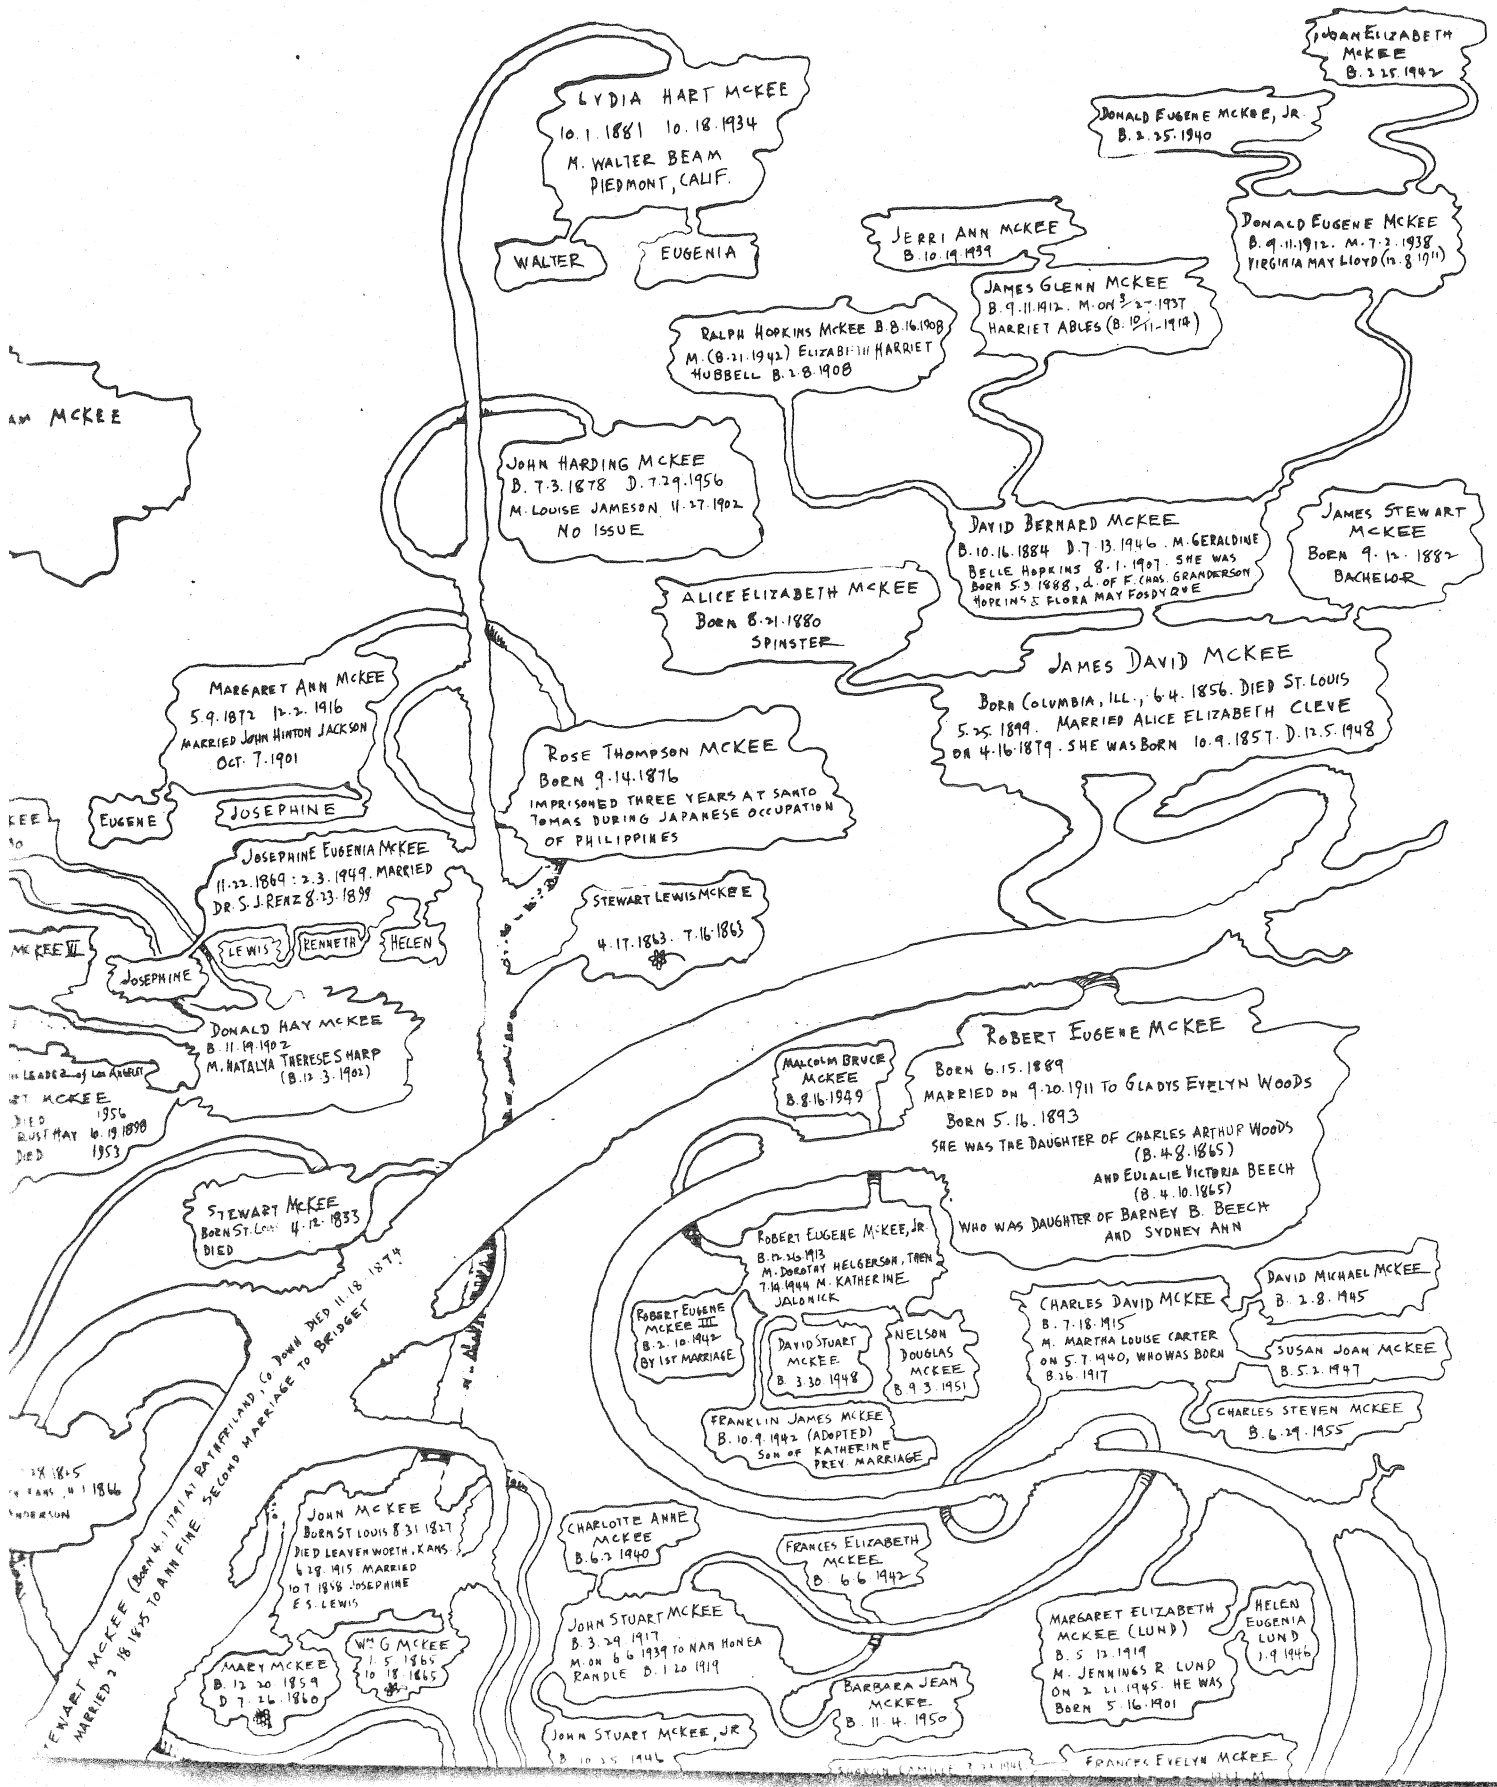 JOAN ELIZABETH
MCKEE
B. 2.25.1942
DONALD EUGENE MCKEE, JR.
B. 2.25.1940
LYDIA HART MCKEE
10.1.1881 10.18.1934
M. WALTER BEAM
PIEDMONT, CALIF.
WALTER
EUGENIA
JERRI ANN MCKEE
B. 10.19.1939
DONALD EUGENE MCKEE
B. 9.11.1912. M. 7.2.1938
VIRGINIA MAY LLOYD (12.8 1911)
JAMES GLENN MCKEE
B. 9.11.1912. M. ON 3/27-1937
HARRIET ABLES (B. 10/11-1914)
RALPH HOPKINS MCKEE B. 8.16.1908
M. (8.21.1942) ELIZABETH HARRIET
HUBBELL B. 2.8.1908
MCKEE
JOHN HARDING MCKEE
B. 7.3.1878 D. 7.29.1956
M. LOUISE JAMESON 11.27.1902
NO ISSUE
DAVID BERNARD MCKEE
B. 10.16.1884 D. 7.13.1946. M. GERALDINE
BELLE HOPKINS 8.1.1907. SHE WAS
BORN 5.3.1888, d. OF F. CHAS. GRANDERSON
HOPKINS & FLORA MAY FOSDYQUE
JAMES STEWART
MCKEE
BORN 9.12.1882
BACHELOR
ALICE ELIZABETH MCKEE
BORN 8.21.1880
SPINSTER
JAMES DAVID MCKEE
BORN COLUMBIA, ILL., 6.4.1856. DIED ST. LOUIS
5.25.1899. MARRIED ALICE ELIZABETH CLEVE
ON 4.16.1879. SHE WAS BORN 10.9.1857. D. 12.5.1948
MARGARET ANN MCKEE
5.9.1872 12.2.1916
MARRIED JOHN HINTON JACKSON
OCT. 7.1901
EUGENE
JOSEPHINE
ROSE THOMPSON MCKEE
BORN 9.14.1876
IMPRISONED THREE YEARS AT SANTO
TOMAS DURING JAPANESE OCCUPATION
OF PHILIPPINES
KEE
JOSEPHINE EUGENIA MCKEE
11.22.1869 : 2.3.1949. MARRIED
DR. S. J. RENZ 8.23.1899
LEWIS
KENNETH
HELEN
STEWART LEWIS MCKEE
4.17.1863. 7.16.1863
MCKEE VI
JOSEPHINE
DONALD HAY MCKEE
B. 11.19.1902
M. NATALYA THERESE SHARP
(B. 12.3.1902)
of LOS ANGELES
MCKEE
DIED 1956
RUST HAY 6.19.1898
DIED 1953
STEWART MCKEE
BORN ST. LOUIS 4.12.1833
DIED
MALCOLM BRUCE
MCKEE
B. 8.16.1949
ROBERT EUGENE MCKEE
BORN 6.15.1889
MARRIED ON 9.20.1911 TO GLADYS EVELYN WOODS
BORN 5.16.1893
SHE WAS THE DAUGHTER OF CHARLES ARTHUR WOODS
(B. 4.8.1865)
AND EULALIE VICTORIA BEECH
(B. 4.10.1865)
WHO WAS DAUGHTER OF BARNEY B. BEECH
AND SYDNEY ANN
ROBERT EUGENE MCKEE, JR.
B. 12.26.1913
M. DOROTHY HELGERSON, THEN
7.14.1944 M. KATHERINE
JALONICK
ROBERT EUGENE
MCKEE III
B. 2.10.1942
BY 1ST MARRIAGE
DAVID STUART
MCKEE
B. 3.30.1948
NELSON
DOUGLAS
MCKEE
B 9.3.1951
FRANKLIN JAMES MCKEE
B. 10.9.1942 (ADOPTED)
SON OF KATHERINE
PREV. MARRIAGE
CHARLES DAVID MCKEE
B. 7.18.1915
M. MARTHA LOUISE CARTER
ON 5.7.1940, WHO WAS BORN
8.26.1917
DAVID MICHAEL MCKEE
B. 2.8.1945
SUSAN JOAN MCKEE
B. 5.2.1947
CHARLES STEVEN MCKEE
B. 6.29.1955
EWART MCKEE (BORN 4.1.1791 AT RATHFRILAND, CO. DOWN DIED 11.18.1874
MARRIED 2.18.1825 TO ANN FINE. SECOND MARRIAGE TO BRIDGET
1866
NDERSON
JOHN MCKEE
BORN ST LOUIS 8 31 1827
DIED LEAVENWORTH, KANS.
6 28.1915 MARRIED
10 7 1858 JOSEPHINE
E S. LEWIS
MARY MCKEE
B. 12 20 1859
D 7.26.1860
WM G MCKEE
1.5.1865
10 18 1865
CHARLOTTE ANNE
MCKEE
B. 6.2 1940
FRANCES ELIZABETH
MCKEE
B. 6 6 1942
JOHN STUART MCKEE
B. 3.29 1917
M. ON 6 6 1939 TO NAN HONEA
RANDLE B. 1 20 1919
BARBARA JEAN
MCKEE
B. 11.4.1950
MARGARET ELIZABETH
MCKEE (LUND)
B. 5 12.1919
M. JENNINGS R. LUND
ON 2 21.1945. HE WAS
BORN 5.16.1901
HELEN
EUGENIA
LUND
1.9 1946
JOHN STUART MCKEE, JR
B 10 25 1946
SHARON CAMILLE
FRANCES EVELYN MCKEE